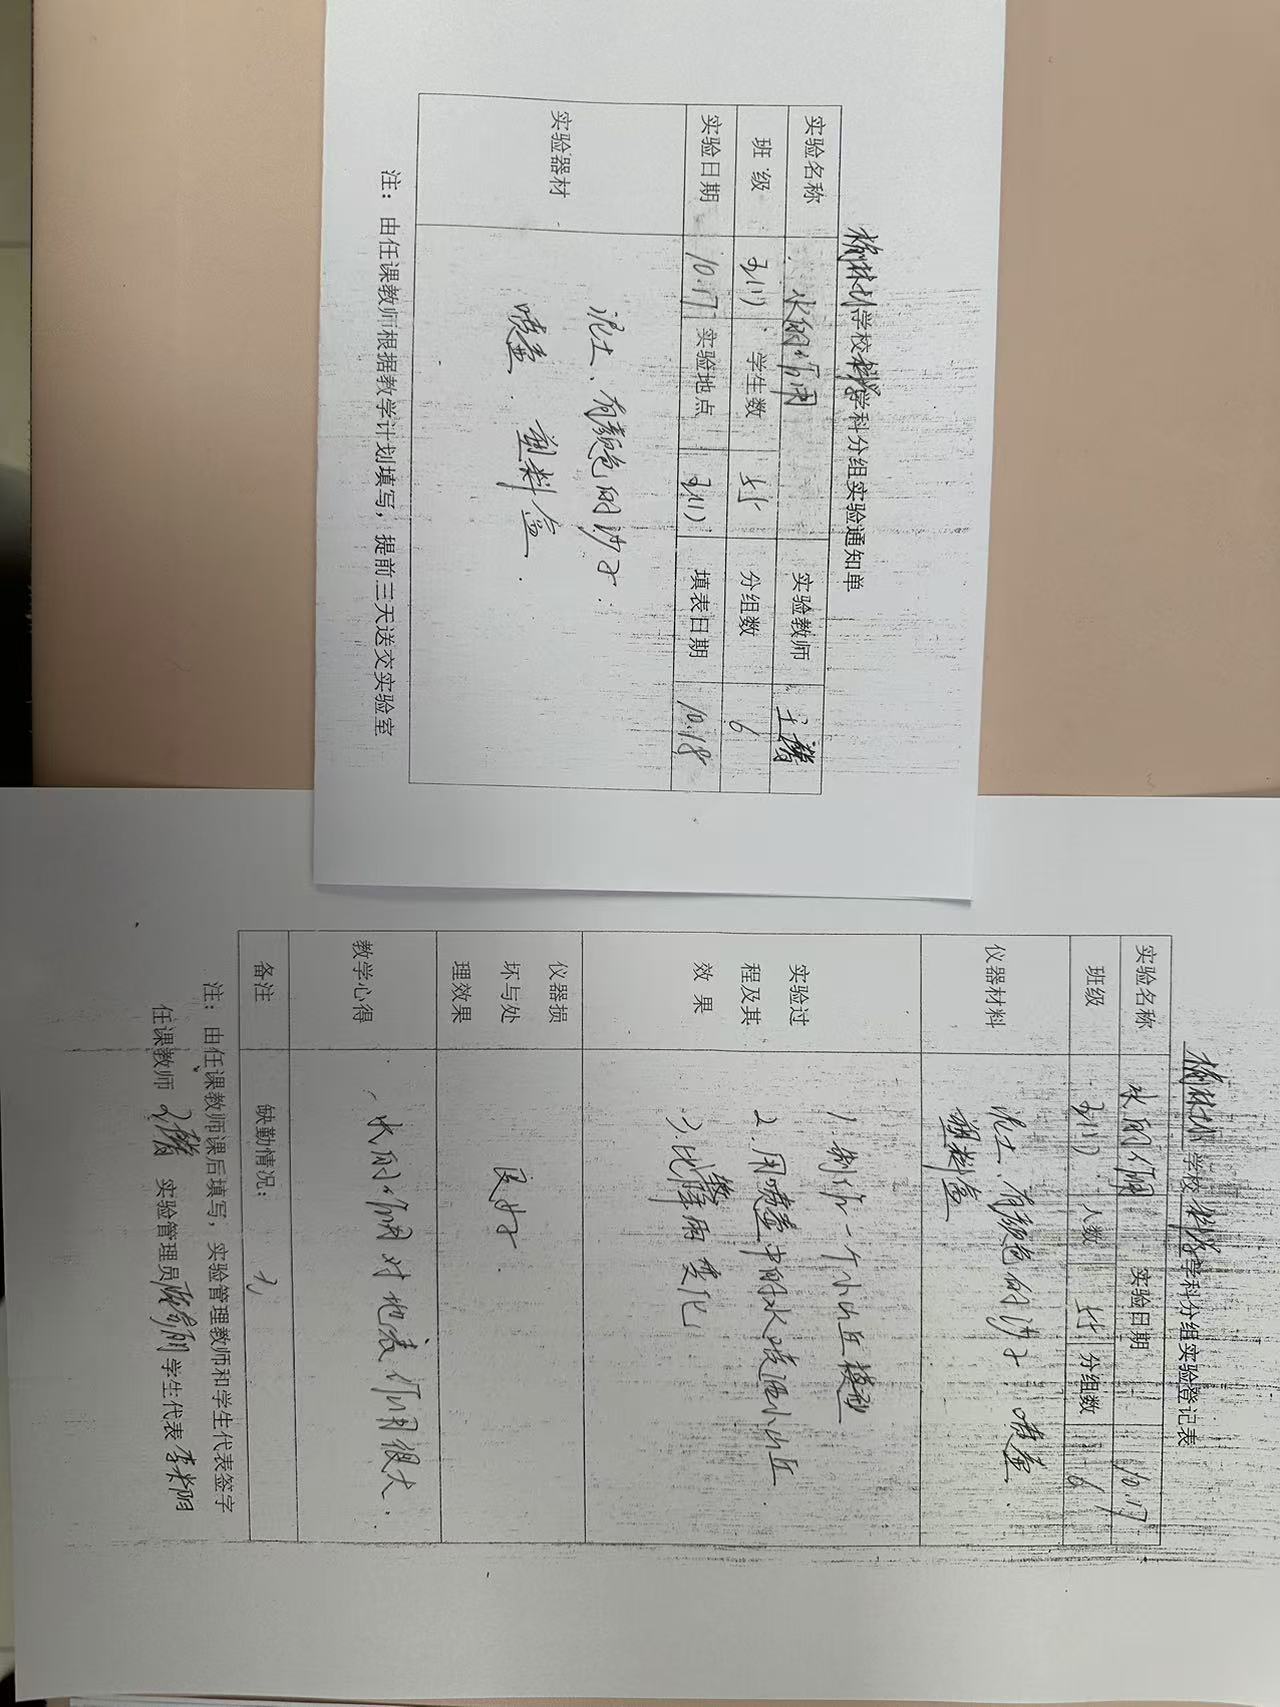 学校科学学科分组实验通知单
实验名称 水的作用 实验教师
班 级 五(1) 学生数 55 分组数 6
实验日期 10.17 实验地点 五(1) 填表日期 10.18
实验器材 泥土、有颜色的沙子.
喷壶. 塑料盒.
注：由任课教师根据教学计划填写，提前三天送交实验室
学校科学学科分组实验登记表
实验名称 水的作用 实验日期 10.17
班级 五(1) 人数 55 分组数 6
仪器材料 泥土、有颜色的沙子. 喷壶.
塑料盒
实验过程及其效果 1.制作一个小山丘模型
2.用喷壶中的水喷洒小山丘.
3.比降雨变化
仪器损坏与处理效果 良好.
教学心得 水的作用对地表作用很大.
备注 缺勤情况： 无
注：由任课教师课后填写，实验管理教师和学生代表签字
任课教师 实验管理员 学生代表